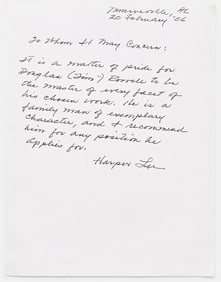 Monroeville, AL
20 February '06
To Whom It May Concern:
It is a matter of pride for
Douglas ("Jim") to be
the master of every facet of
his chosen work. He is a
family man of exemplary
character, and I recommend
him for any position he
applies for.
Harper Lee